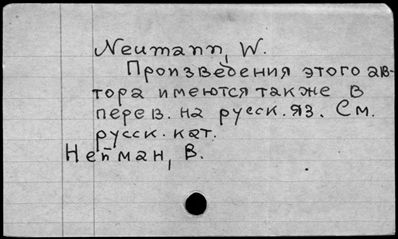 Neumann, W.
Произведения этого ав-
тора имеются также в
перев. на русск. яз. См.
русск. кат.
Нейман, В.